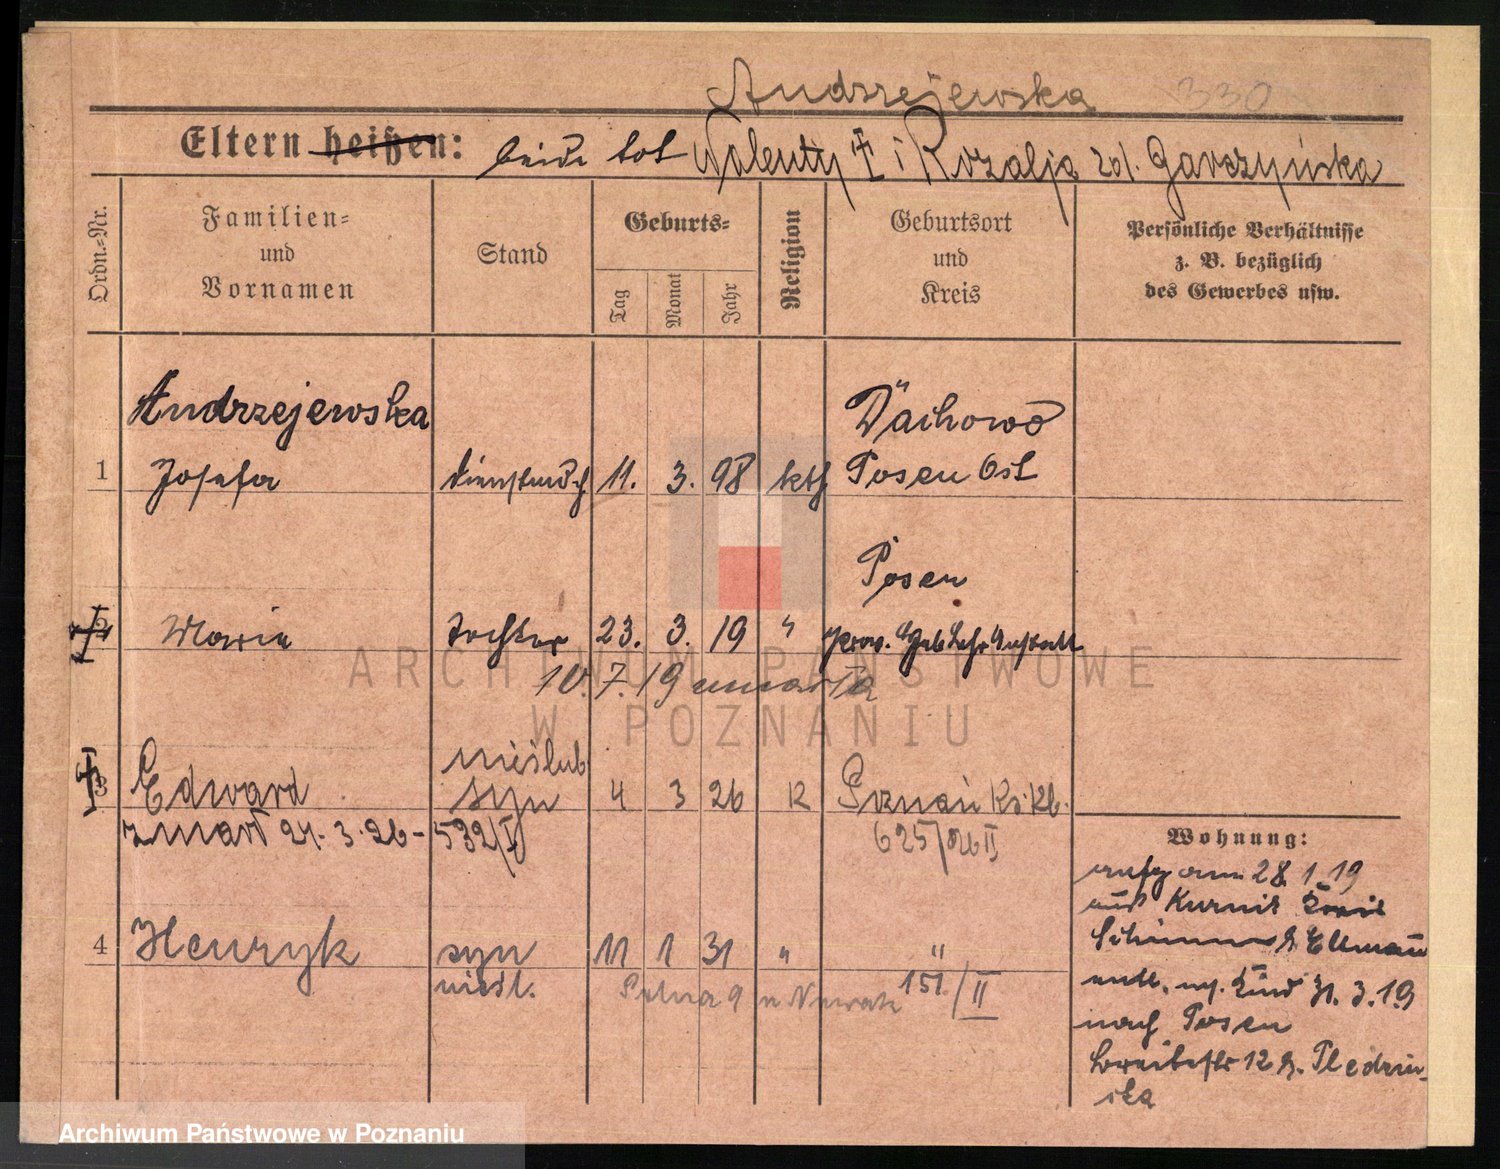 Andrzejewska 330
Eltern heißen: beide tot Walenty † i Rozalja zd. Garczyńska
Ordn.-Nr.
Familien-
und
Vornamen
Stand
Geburts-
Tag
Monat
Jahr
Religion
Geburtsort
und
Kreis
Persönliche Verhältnisse
z. B. bezüglich
des Gewerbes usw.
Andrzejewska Dachowo
1 Josefa 11. 3. 98 kth Posen Ost
Posen
2 Marie Tochter 23. 3. 19 " prov. Heb. Lehr Anstalt
10. 7. 19 umarła
nieślub
3 Edward syn 4 3 26 K Poznań Ks. Kb.
zmarł 24. 3. 26 - 532/I 625/26 II
4 Henryk syn 11 1 31 " "
nieśl. Polna 9 u Nowak 151/II
Wohnung:
aufg am 28. 1. 19
aus Kurnik Kreis
Schrimm b. Ellmann
entl. m. Kind 31. 3. 19
nach Posen
Breitestr 12 b.
ska
ARCHIWUM PAŃSTWOWE
W POZNANIU
Archiwum Państwowe w Poznaniu